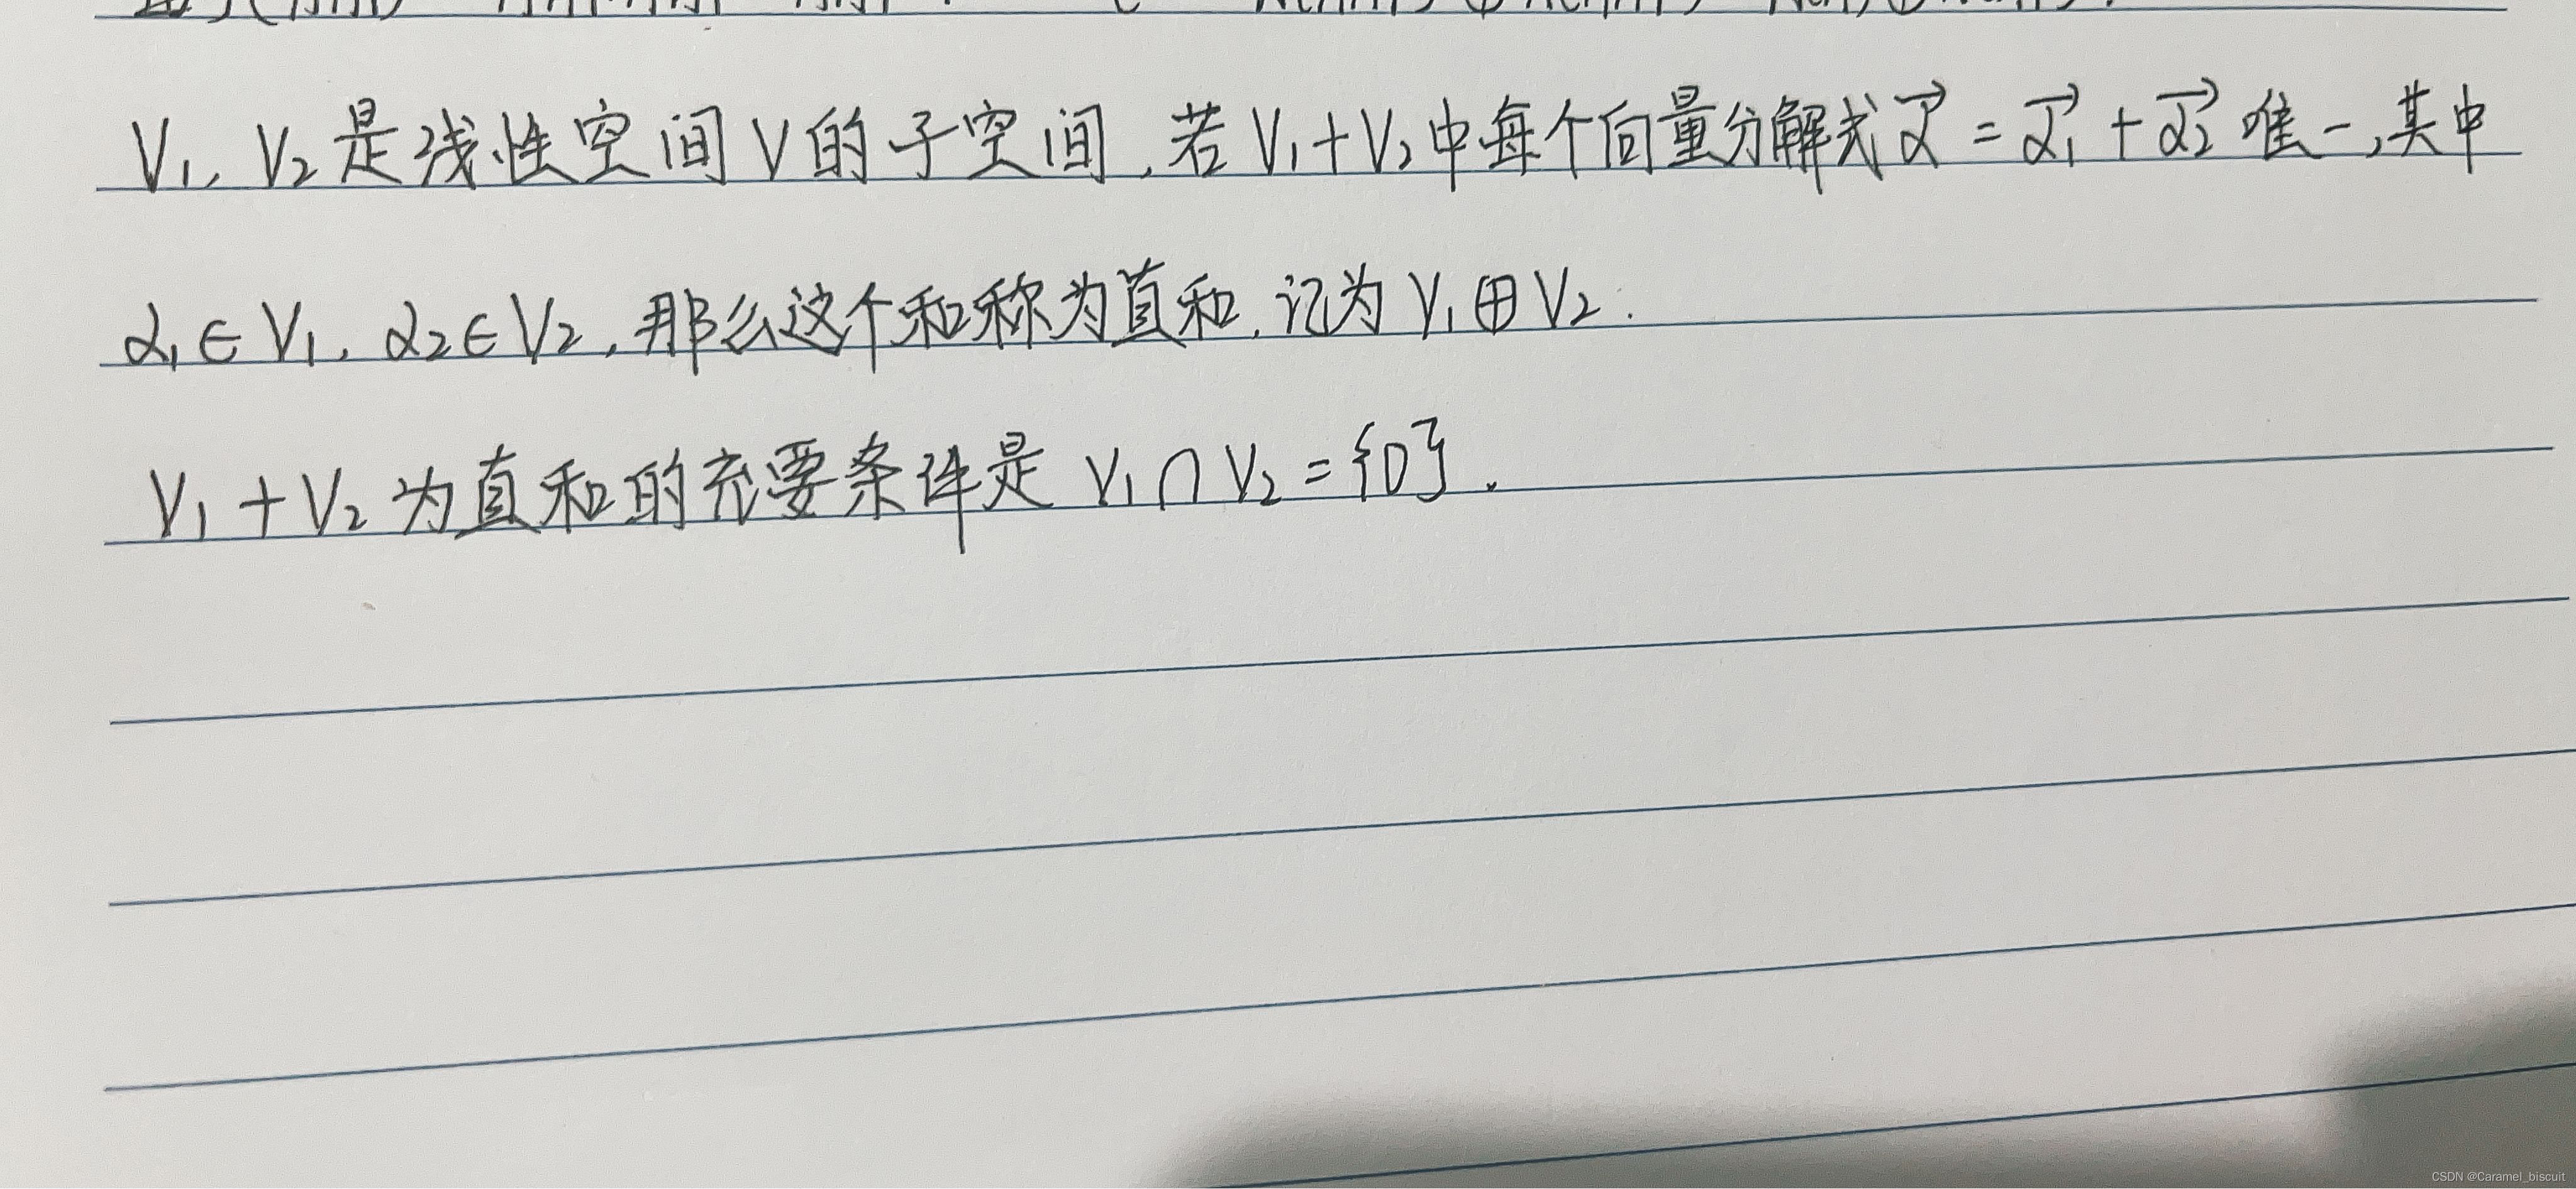 V₁, V₂是线性空间V的子空间,若V₁+V₂中每个向量分解式α⃗=α⃗₁+α⃗₂唯一,其中
α₁∈V₁, α₂∈V₂,那么这个和称为直和,记为V₁⊕V₂.
V₁+V₂为直和的充要条件是 V₁∩V₂={0}.
CSDN @Caramel_biscuit